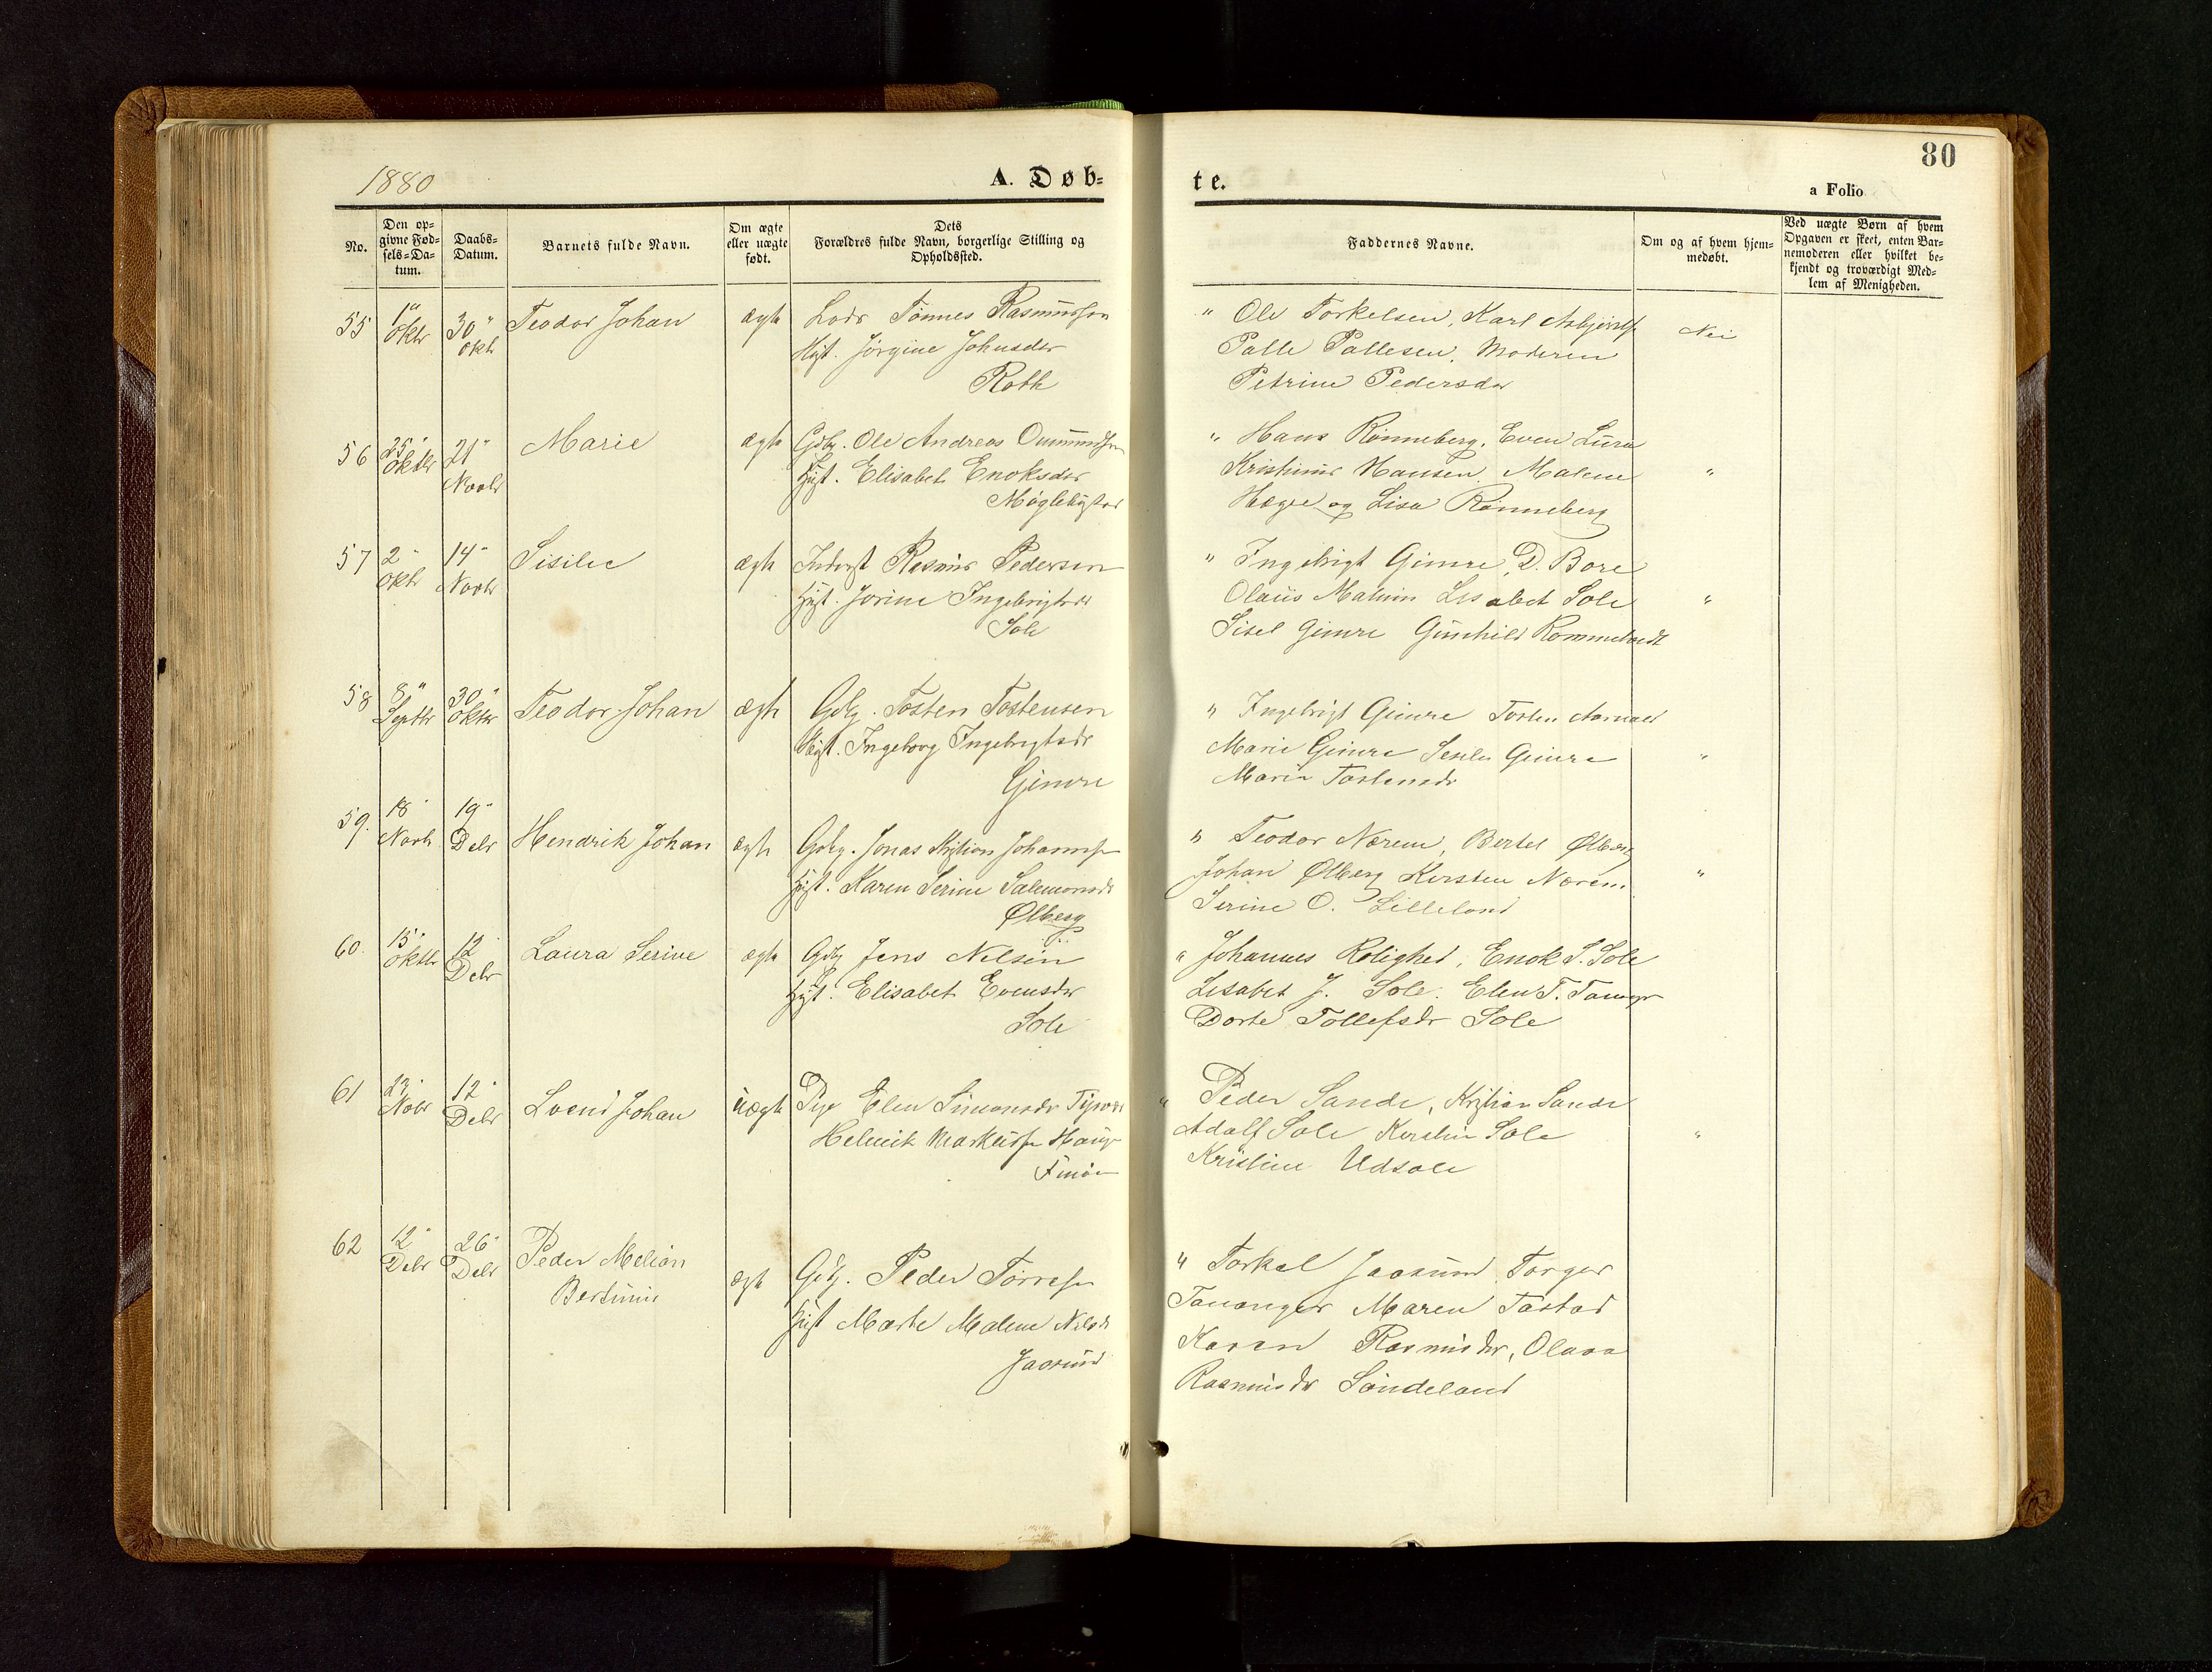 1880
A. Døb-
te.
80
a Folio
No.
Den op-
givne Fød-
sels-Da-
tum.
Daabs-
Datum.
Barnets fulde Navn.
Om ægte
eller uægte
født.
Dets
Forældres fulde Navn, borgerlige Stilling og
Opholdssted.
Faddernes Navne.
Om og af hvem hjem-
medøbt.
Ved uægte Børn af hvem
Opgaven er skeet, enten Bar-
nemoderen eller hvilket be-
kjendt og troværdigt Med-
lem af Menigheden.
55 1" Oktr 30" Oktr Teodor Johan ægte Lods Tønnes Rasmussen
Hust. Jørgine Johnsdtr
Roth
" Ole Torkelsen, Karl
Palle Pallesen. Moderen
Petrine Pedersdtr
Nei
56 25" Oktbr 21" Novbr Marie ægte Gdbr. Ole Andreas
Hust. Elisabet Enoksdtr
" Hans Rönneberg. Even Lura
Hansen. Malene
og Lisa Rönneberg
"
57 2" Oktr 14" Novbr Sisilie ægte Rasmus Pedersen
Hust. Jorine Ingebrigtsdtr
Sole
" Ingebrigt Gimre, D. Bore
Olaus Lisabet Sole
Sisel Gimre Gunhild
"
58 8" Septbr 30" Oktbr Teodor Johan ægte Gdbr. Tosten Tostensen
Hust. Ingeborg Ingebrigtsdr
Gimre
" Ingebrigt Gimre Tosten
Marie Gimre Gimre
Maria Tostensdr
"
59. 18" Novbr 19" Debr Hendrik Johan ægte Gdbr. Jonas Kristian
Hust. Karen Serine Salemonsdr
Ølberg
" Teodor Nærem, Bertel Ølberg
Johan Ølberg Kersten Nærem
Serine O. Lilleland
"
60. 15" Oktbr 12" Debr Laura Serine ægte Gdbr Jens Nelsen
Hust. Elisabet Evensdr
Sole
" Johannes Rolighed, Enok S. Sole
Lisabet J. Sole. Elen T.
Dorte Tollefsdr Sole
61 23" Nobr 12" Debr Svend Johan uægte Pige Elen Simonsdr
Helmik
" Peder Sande, Kristian Sande
Adolf Sole Kerstin Sole
Kristine Udsole
"
62 12" Debr 26" Debr Peder Melion
Bertinus
ægte Gdbr. Peder
Hust Marte Malene Nelsdr
Jaasund
" Torkel Jaasund, Torger
Tananger Maren Tastad
Karen Rasmusdr, Olava
Rasmusdr Sandeland